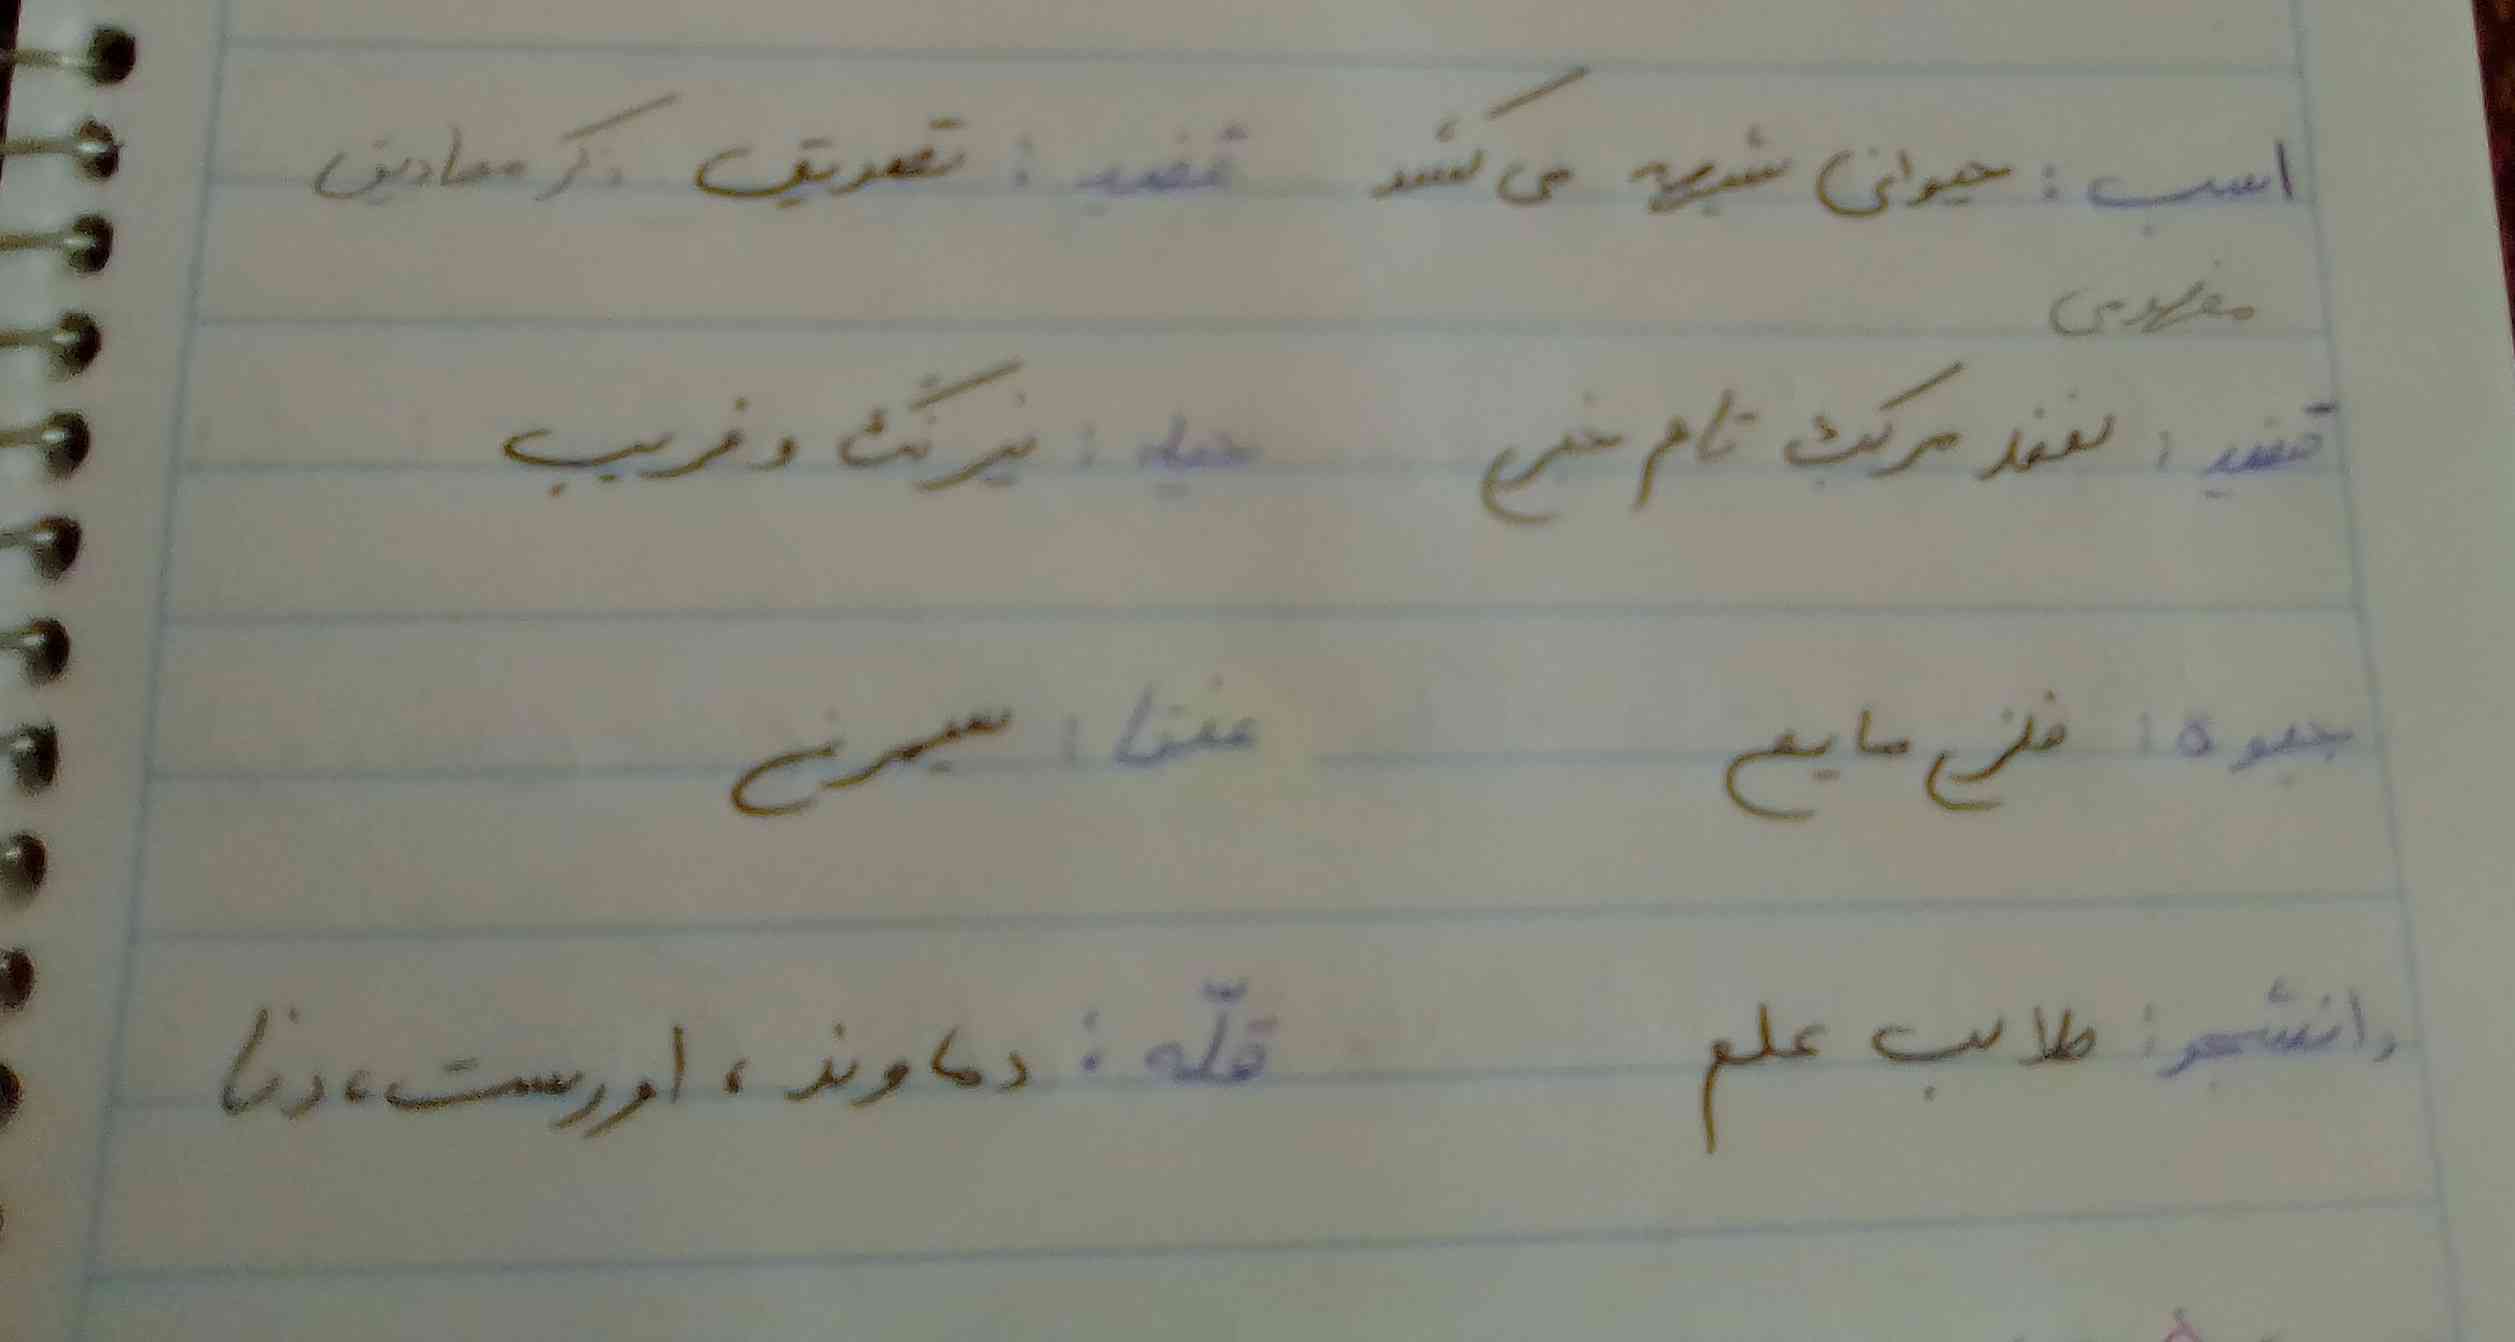 اسب : حیوانی شیهه می کشد قضیه : تصدیق ذکر مصادیق
مفهومی
قضیه : لفظ مرکب تام خبری حیله : نیرنگ و فریب
جیوه : فلزی مایع عنقا : سیمرغ
دانشجو : طالب علم قلّه : دماوند ، اورست ، دنا